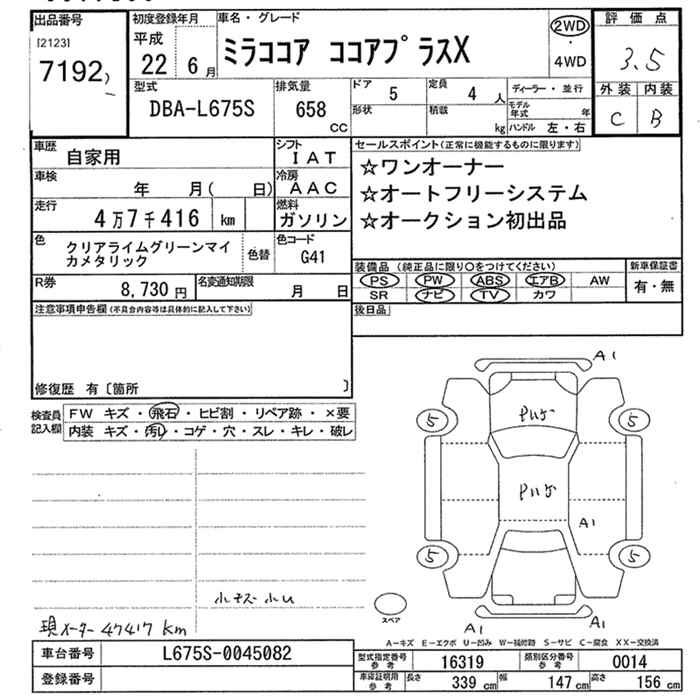 出品番号 初度登録年月 車名・グレード 評価点
[2123] 平成 ミラココア ココアプラスX 2WD
7192 22 6月 ・ 3.5
4WD
型式 排気量 ドア 5 定員 4人 ディーラー・並行 外装 内装
DBA-L675S 658 cc 形状 積載 kg モデル年式 年 C B
ハンドル 左・右
車歴 自家用 シフト IAT セールスポイント(正常に機能するものに限ります)
車検 年 月( 日) 冷房 AAC ☆ワンオーナー
走行 4万7千416 km 燃料 ガソリン ☆オートフリーシステム
☆オークション初出品
色 クリアライムグリーンマイカメタリック 色替 色コード G41
装備品(純正品に限り○をつけてください) 新車保証書
R券 8,730円 名変通知期限 月 日 PS PW ABS エアB AW 有・無
SR ナビ TV カワ
注意事項申告欄(不具合内容等は具体的に記入して下さい) 後日品
修復歴 有〔箇所 〕
検査員記入欄 FW キズ・飛石・ヒビ割・リペア跡・×要
内装 キズ・汚レ・コゲ・穴・スレ・キレ・破レ
A1
5 5
A1
5 5
スペア
A1 A1
現メーター 47417 km
A-キズ E-エクボ U-凹み W-補修跡 S-サビ C-腐食 XX-交換済
車台番号 L675S-0045082 型式指定番号 参考 16319 類別区分番号 参考 0014
登録番号 車庫証明用 参考 長さ 339 cm 幅 147 cm 高さ 156 cm